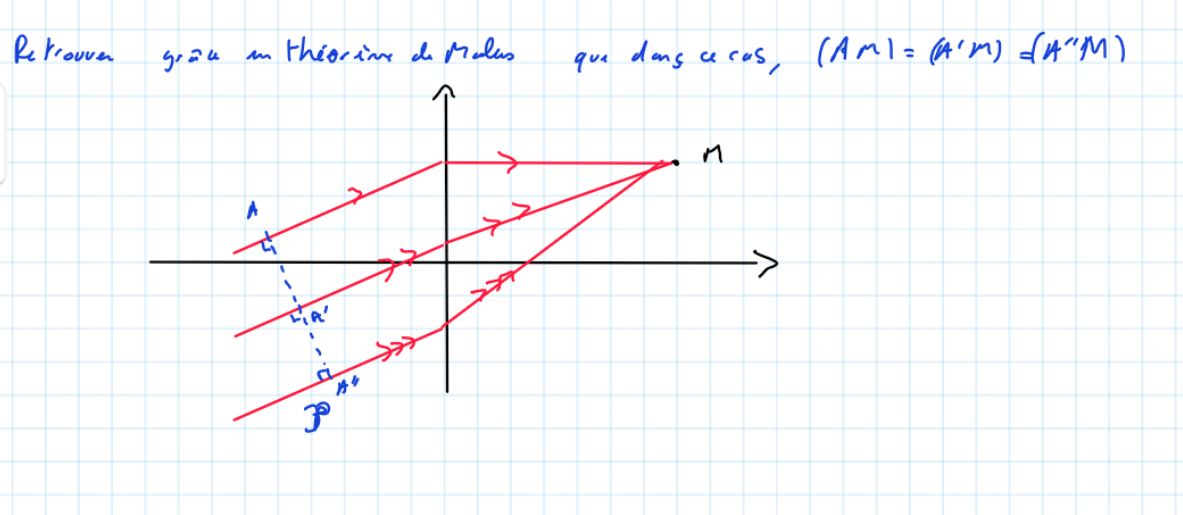 Retrouver grâce au théorème de Malus que dans ce cas, (AM) = (A'M) = (A"M)
M
A
A'
A"
P